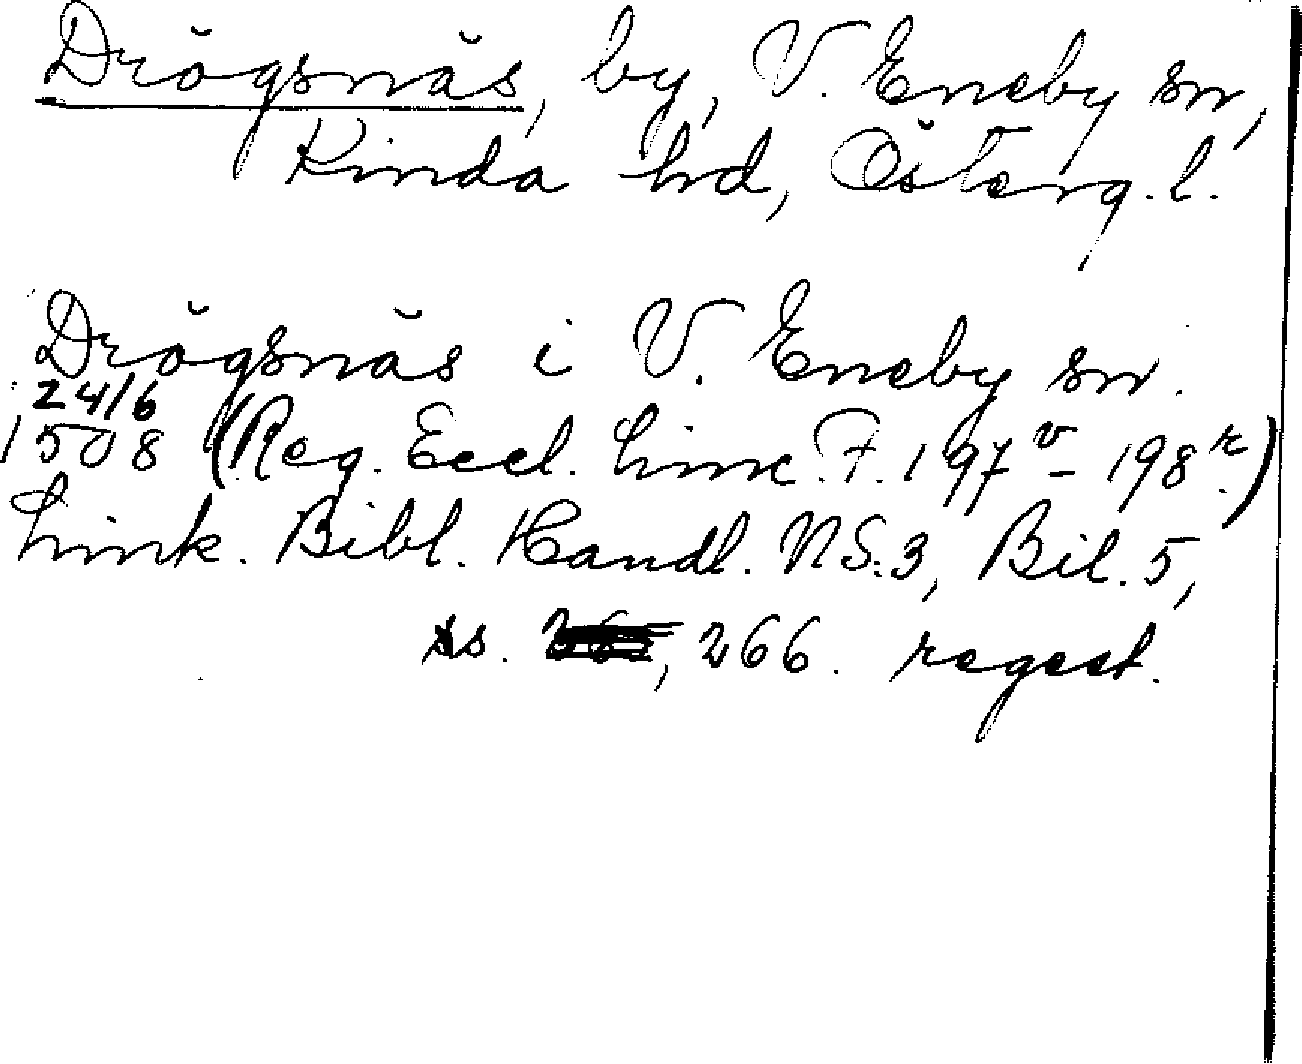 Drögsnäs, by, V. Eneby sn,
Kinda hd, Österg. l.
Drögsnäs i V. Eneby sn.
24/6
1508 (Reg. Eccl. Linc. F. 197 v – 198 r.)
Link. Bibl. Handl. NS. 3, Bil. 5,
s. , 266. regest.